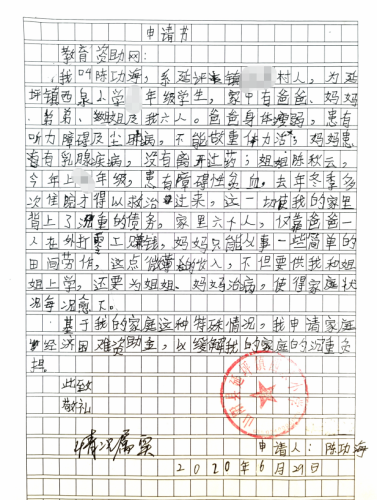 申请书
教育资助网：
我叫陈功海，系延坪镇村人，为延
坪镇西泉小学年级学生，家中有爸爸、妈妈
、爷爷、姐姐及我六人。爸爸身体瘦弱，患有
听力障碍及尘肺病，不能做重体力活；妈妈患
有乳腺疾病，没有离开过药；姐姐陈秋云，
今年上年级，患有障碍性贫血。去年冬季多
次住院才得以救治过来，这一切使我的家里
背上了沉重的债务，家里六个人，仅靠爸爸一
人在外打零工赚钱，妈妈只能从事一些简单的
田间劳作，这点微薄的收入，不但要供我和姐
姐上学，还要为姐姐、妈妈治病，使得家庭状
况每况愈下。
基于我的家庭这种特殊情况，我申请家庭
经济困难资助金，以缓解我的家庭的沉重负
担。
此致
敬礼
情况属实
申请人：陈功海
2020年6月29日